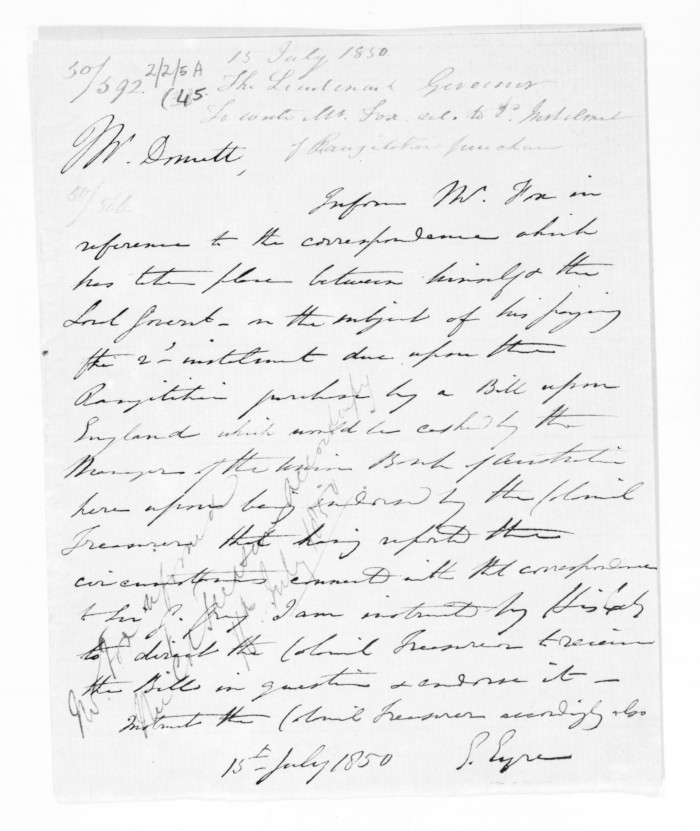 15 July 1850.
50/392. 2/2/5A
(45.
The Lieutenant Governor
To write Mr. Fox rel. to 2d. Instalment
of Rangitikei purchase
Mr. Domett,
50/
Inform Mr. Fox in
reference to the correspondence which
has taken place between himself & the
Local Govern't - on the subject of his paying
the 2d instalment due upon the
Rangitikei purchase by a Bill upon
England which would be cashed by the
Manager of the Union Bank of Australia
here upon being indorsed by the Colonial
Treasurer that having reported the
circumstances connected with that correspondence
to Sir G. Grey I am instructed by His Excy
to direct the Colonial Treasurer to receive
the Bills in question & endorse it -
Instruct the Colonial Treasurer accordingly also
15th July 1850 E. Eyre
Mr. Fox informed
Col. Treasurer accordingly
July 1850